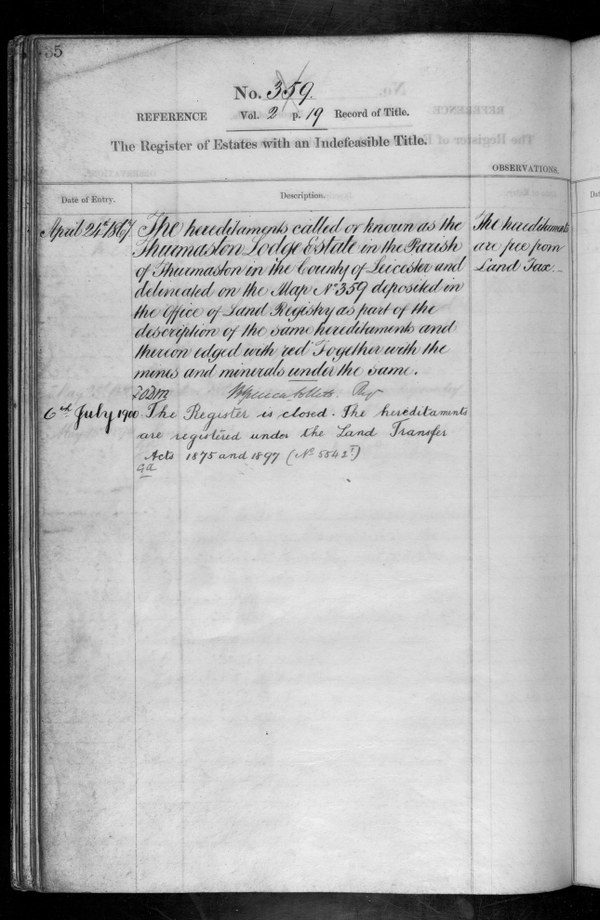 35
No. 359.
REFERENCE Vol. 2 p. 19 Record of Title.
The Register of Estates with an Indefeasible Title.
OBSERVATIONS.
Date of Entry.
Description.
April 24th 1867
The hereditaments called or known as the
Thurmaston Lodge Estate in the Parish
of Thurmaston in the County of Leicester and
delineated on the Map No 359 deposited in
the Office of Land Registry as part of the
description of the same hereditaments and
thereon edged with red Together with the
mines and minerals under the same.
The hereditaments
are free from
Land Tax.
Reg
6th July 1900. The Register is closed. The hereditaments
are registered under the Land Transfer
Acts 1875 and 1897 (No 5542)